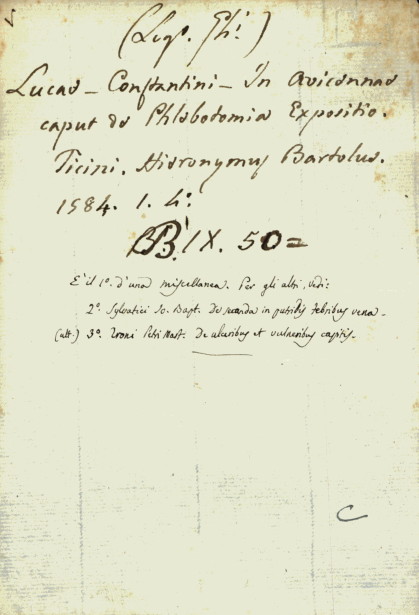 Lucas - Constantini - In Avicennae
caput de Phlebotomia Expositio.
Ticini. Hieronymus Bartolus.
1584. 1. 4°.
BB. IX. 50=
È il 1°. d'una miscellanea. Per gli altri, vedi:
2°. Sylvatici Jo. Bapt. De secanda in putridis febribus vena.
(ult.) 3°. Petri Mart. De ulceribus et vulneribus capitis.
C